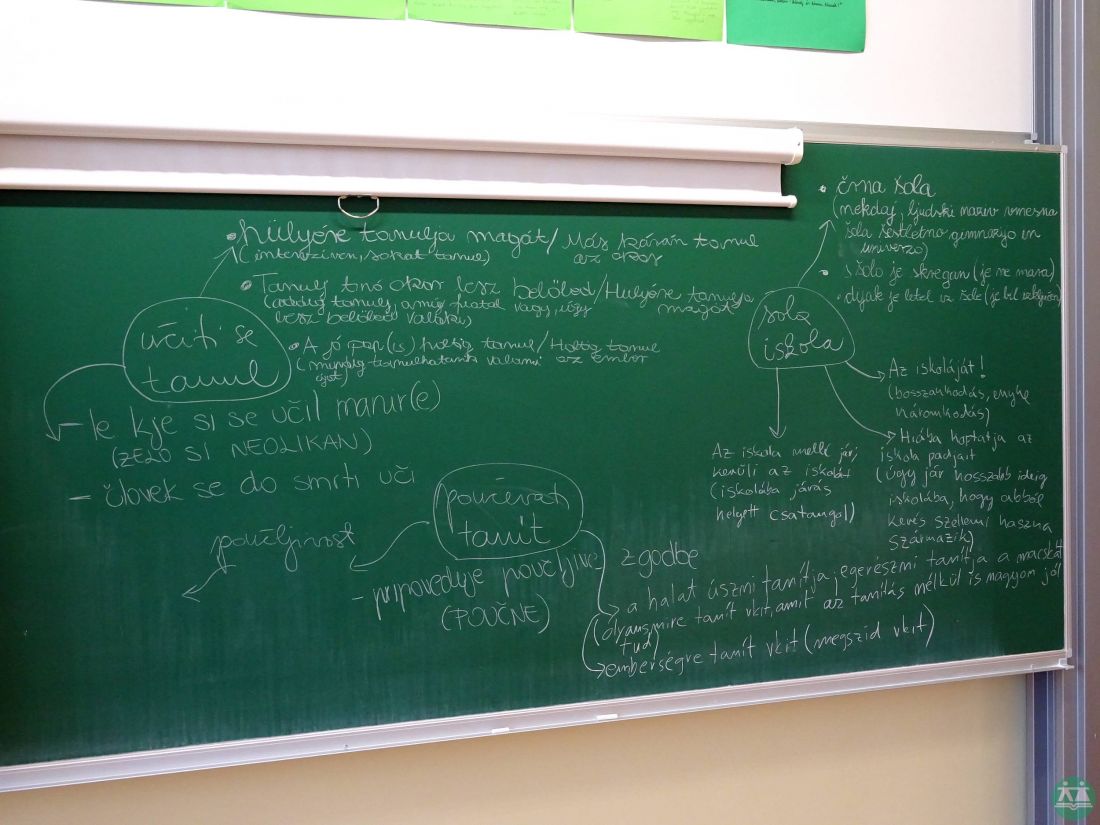 • hülyére tanulja magát / Más kárán tanul
(intenzíven, sokat tanul) az okos
• Tanulj tinó ökör lesz belőled / Hülyére tanulja
(addig tanulj, amíg fiatal vagy, úgy magát
lesz belőled valaki)
• A jó pap (is) holtig tanul / Holtig tanul
(mindig tanulhatunk valami az ember
újat)
učiti se
tanul
– le kje si se učil manir(e)
(ZELO SI NEOLIKAN)
– človek se do smrti uči
poučevati
tanít
poučljivost
– pripoveduje poučljive zgodbe
(POUČNE)
a halat úszni tanítja, egerészni tanítja a macskát
(olyasmire tanít vkit, amit az tanítás nélkül is nagyon jól
tud)
emberségre tanít vkit (megszid vkit)
šola
iskola
• črna šola
(nekdaj, ljudski naziv
šola šestletno gimnazijo in
univerzo)
• šolo je skregan (je ne mara)
• dijak je letel iz šole (je bil izključen)
Az iskoláját!
(bosszankodás, enyhe
káromkodás)
Hiába koptatja az
iskola padjait
(úgy jár hosszabb ideig
iskolába, hogy abból
kevés szellemi haszna
származik)
Az iskola mellé jár,
kerüli az iskolát
(iskolába járás
helyett csatangol)